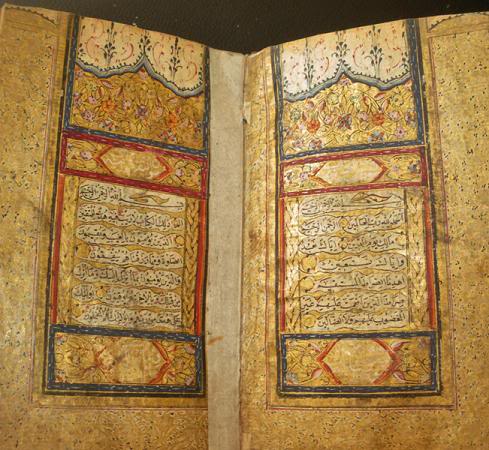 بسم الله الرحمن الرحيم
الحمد لله رب العالمين الرحمن الرحيم
ملك يوم الدين اياك نعبد
واياك نستعين
اهدنا الصراط المستقيم
صراط الذين انعمت عليهم غير
المغضوب عليهم ولا الضالين
بسم الله الرحمن الرحيم
الم ذلك الكتاب لا ريب فيه هدى للمتقين
الذين يؤمنون بالغيب ويقيمون
الصلوة ومما رزقناهم ينفقون
والذين يؤمنون بما انزل اليك وما انزل
من قبلك وبالاخرة هم يوقنون اولئك
على هدى من ربهم واولئك هم المفلحون